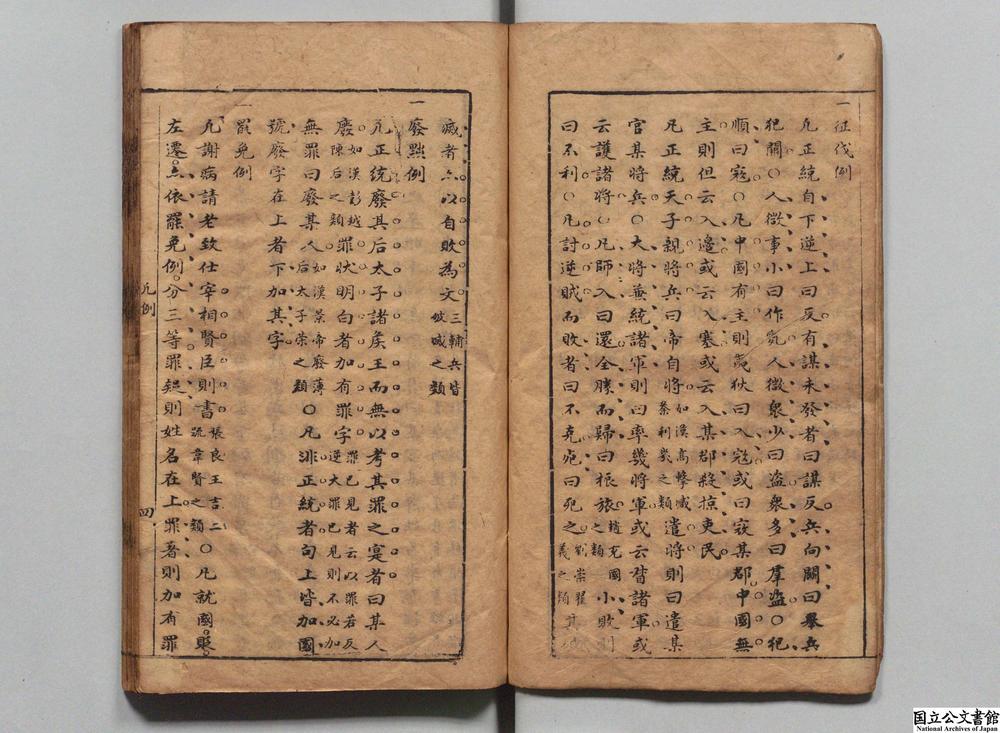 一征伐例
凡正統自下逆上曰反有謀未發者曰謀反兵向闕曰舉兵
犯闕○人微事小曰作亂人微衆少曰盗衆多曰羣盗○犯
順曰寇○凡中國有主則夷狄曰入寇或曰寇某郡中國無
主則但云入邉或云入塞或云入某郡殺掠吏民
凡正統天子親將兵曰帝自將如漢高撃臧荼利幾之類遣將則曰遣某
官某將兵○大將兼統諸軍則曰率幾將軍或云督諸軍或
云護諸將○凡師入曰還全勝而歸曰振旅趙充國之類小敗則
曰不利○凡討逆賊而敗者曰不克死曰死之劉崇翟義之類其
滅者亦以自敗為文三輔兵皆破滅之類
一廢黜例
凡正統廢其后太子諸矦王而無以考其罪之寔者曰某人
廢如漢彭越陳后之類罪状明白者加有罪字罪已見者云以罪若反逆大罪已見則不必加
無罪曰廢某人如漢景帝廢薄后太子榮之類○凡非正統者句上皆加國
號廢字在上者下加其字
一罷免例
凡謝病請老致仕宰相賢臣則書張良王吉二疏韋賢之類○凡就國貶
左遷亦依罷免例分三等罪疑則姓名在上罪著則加有罪
凡例
四
国立公文書館
National Archives of Japan